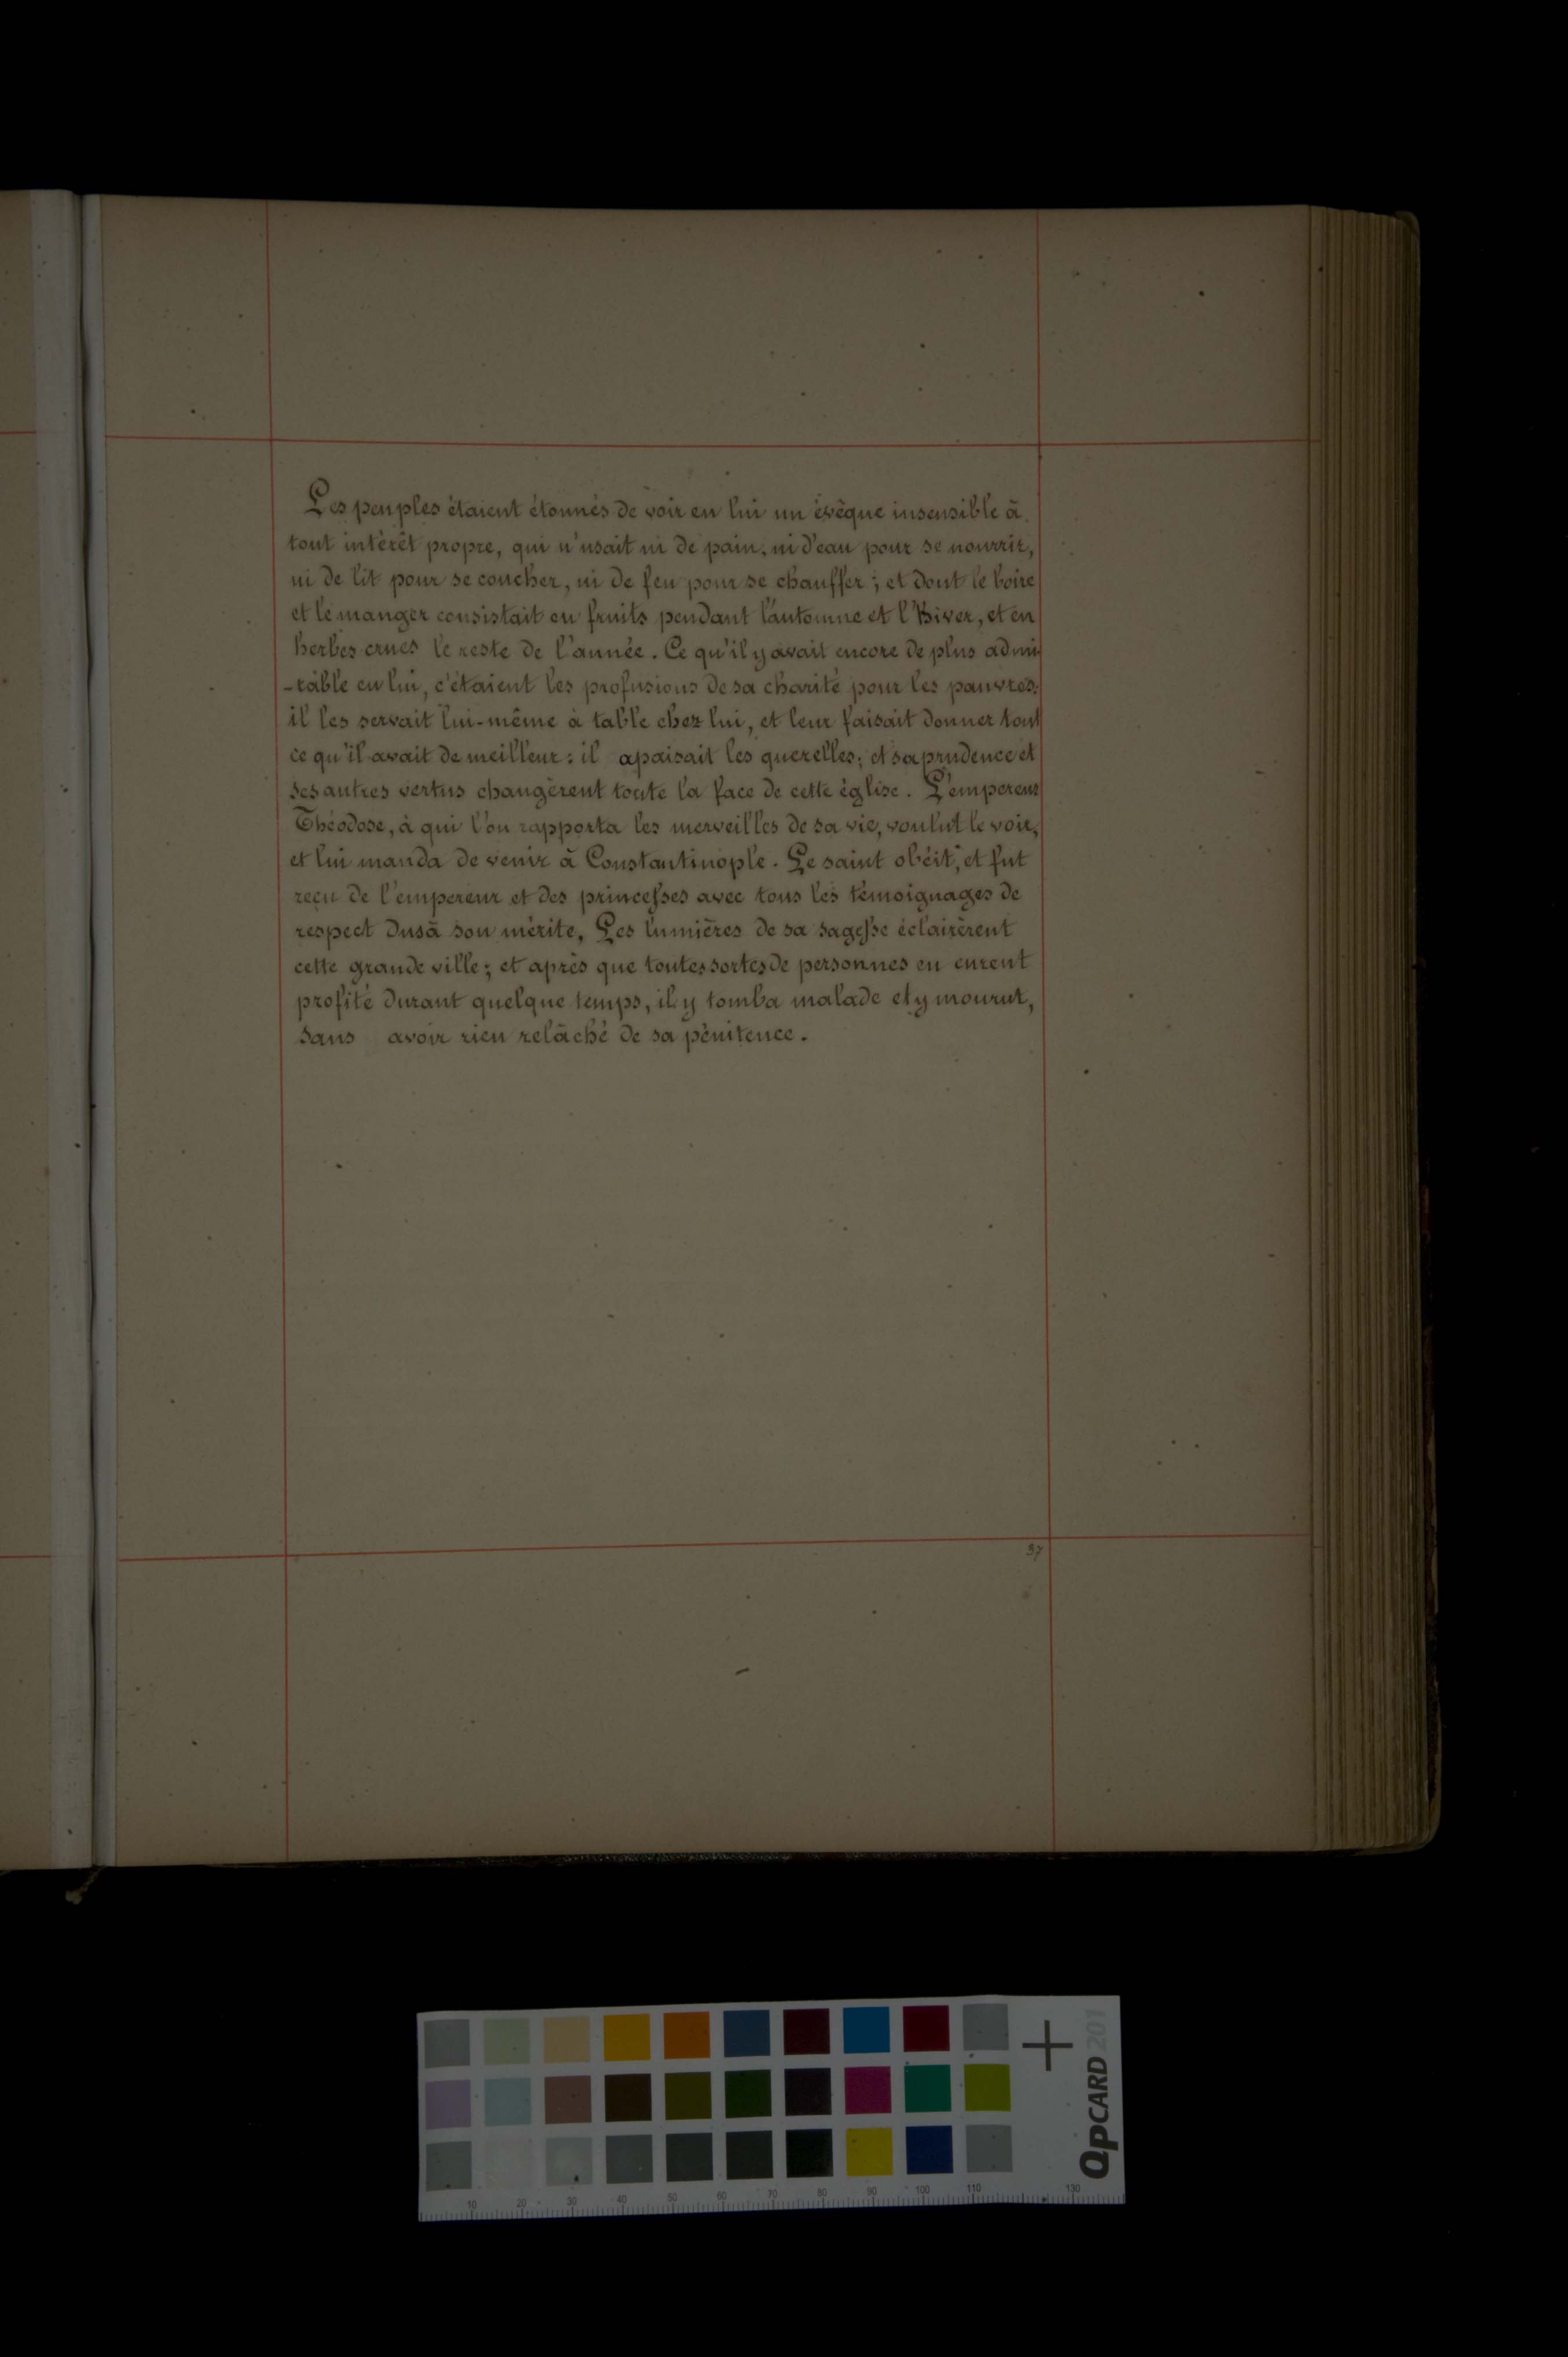 Les peuples étaient étonnés de voir en lui un évêque insensible à
tout intérêt propre, qui n'usait ni de pain, ni d'eau pour se nourrir,
ni de lit pour se coucher, ni de feu pour se chauffer ; et dont le boire
et le manger consistait en fruits pendant l'automne et l'hiver, et en
herbes crues le reste de l'année. Ce qu'il y avait encore de plus admi-
-rable en lui, c'étaient les profusions de sa charité pour les pauvres:
il les servait lui-même à table chez lui, et leur faisait donner tout
ce qu'il avait de meilleur : il apaisait les querelles; et sa prudence et
ses autres vertus changèrent toute la face de cette église. L'empereur
Théodose, à qui l'on rapporta les merveilles de sa vie, voulut le voir,
et lui manda de venir à Constantinople. Le saint obéit, et fut
reçu de l'empereur et des princesses avec tous les témoignages de
respect dus à son mérite. Les lumières de sa sagesse éclairèrent
cette grande ville ; et après que toutes sortes de personnes en eurent
profité durant quelque temps, il y tomba malade et y mourut,
sans avoir rien relâché de sa pénitence.
37
QPCARD 201
10 20 30 40 50 60 70 80 90 100 110 130